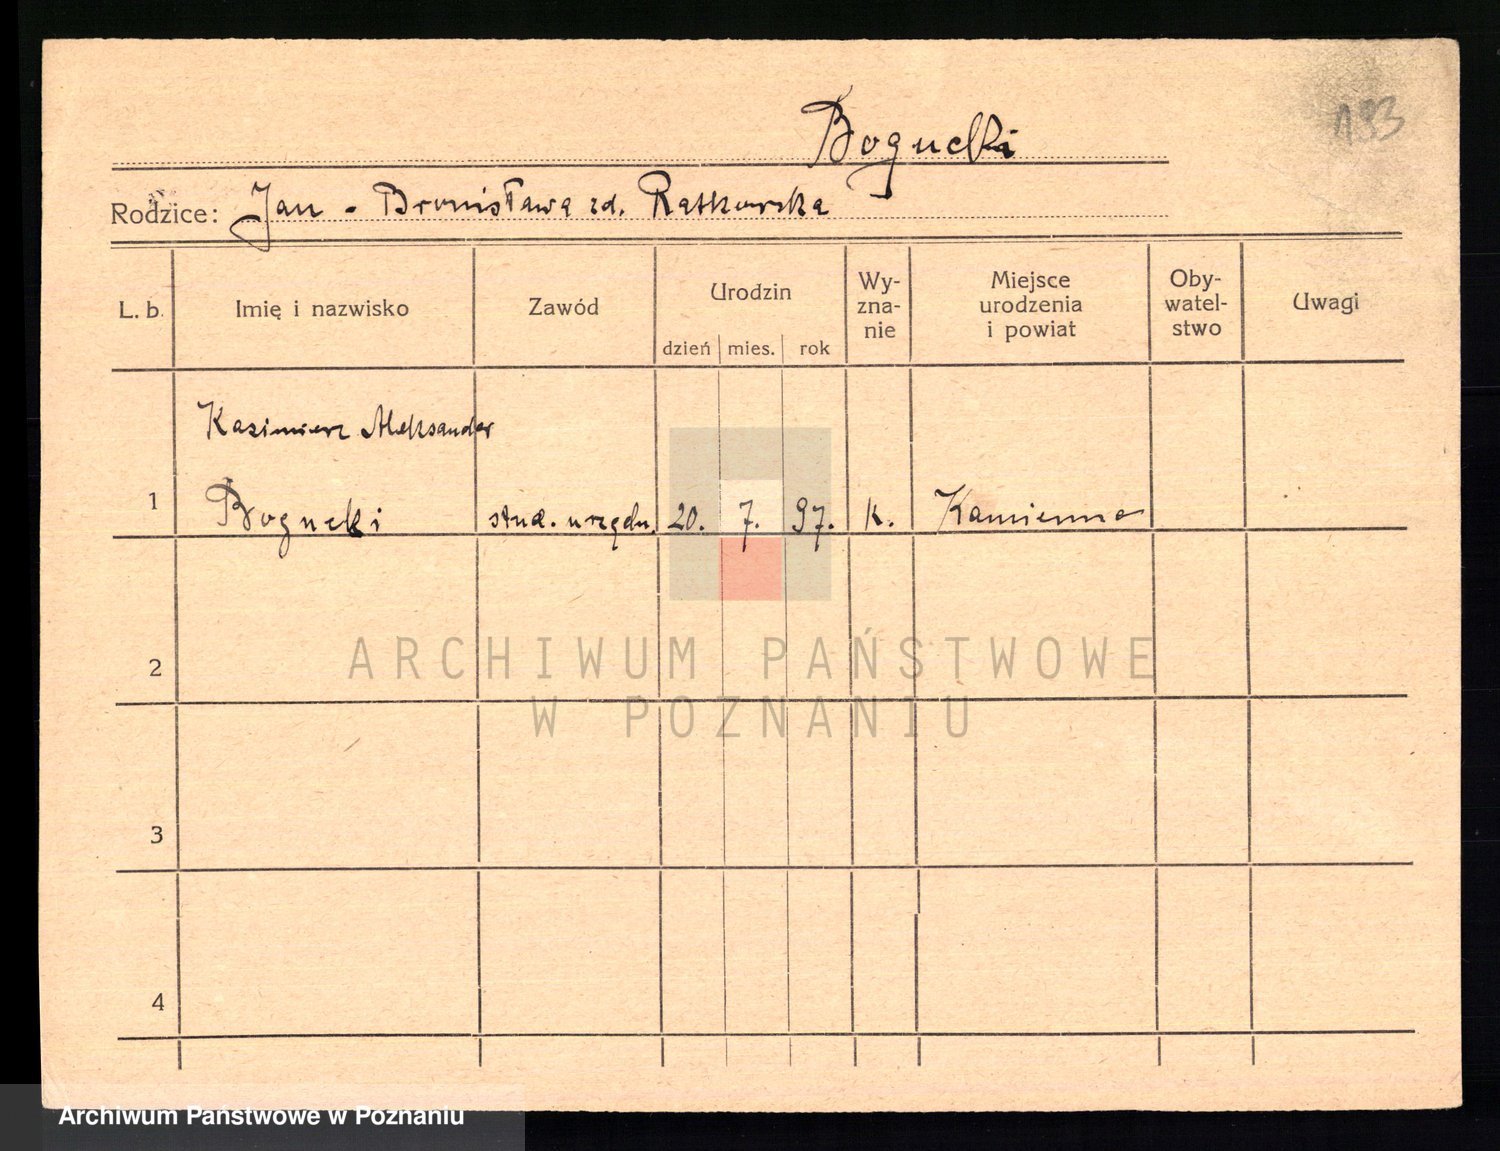 Bogucki
183
Rodzice: Jan - Bronisława zd. Ratkowska
L. b. Imię i nazwisko Zawód Urodzin dzień mies. rok Wy-
zna-
nie Miejsce
urodzenia
i powiat Oby-
watel-
stwo Uwagi
Kazimierz Aleksander
1 Bogucki stud. urzędn. 20. 7. 97. k. Kamienna
2
ARCHIWUM PAŃSTWOWE
W POZNANIU
3
4
Archiwum Państwowe w Poznaniu